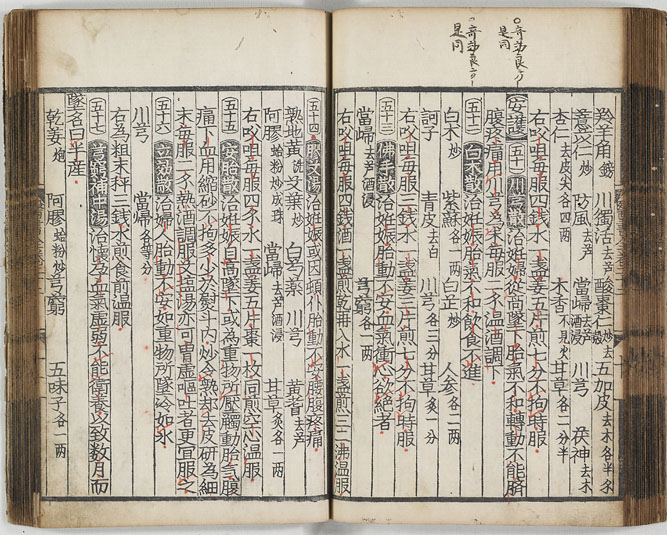 羚羊角鎊 川獨活去芦 酸棗仁炒去殻 五加皮去木各半分
薏苡仁炒 防風去芦 當歸去芦酒浸 川芎 茯神去木
杏仁去皮尖各四分 木香不見火 甘草各一分半
右㕮咀每服四錢水一盞姜五片煎七分不拘時服
安護 五十一 川芎散 治姙娠從高墜下胎氣不和轉動不能臍
腹疼痛用川芎爲末每服二錢溫酒調下
五十二 白术散 治姙娠胎氣不和飲食不進
白术炒 紫蘇 白芷炒 人參各一兩
訶子 青皮去白 川芎各三分 甘草炙一分
右㕮咀每服三錢水一盞姜三片煎七分不拘時服
五十三 佛手散 治姙娠胎動不安血氣衝心欲絶者
當歸去芦酒浸 芎藭各一兩
右㕮咀每服四錢酒一盞煎乾再入水一盞煎三二沸溫服
五十四 膠艾湯 治姙娠或因頓仆胎動不安腰腹疼痛
熟地黃洗 艾葉炒 白芍藥 川芎 黃耆去芦
阿膠蛤粉炒成珠 當歸去芦酒浸 甘草炙各一兩
右㕮咀每服四錢水一盞姜五片棗一枚同煎空心溫服
五十五 安胎散 治姙娠自高墜下或為重物所壓觸動胎气腹
痛下血用縮砂不拘多少於熨斗内炒令熱却去皮研為細
末每服二錢熱酒調服艾塩湯亦可冒虛嘔吐者更宜服之
五十六 立効散 治婦人胎動不安如重物所墜冷如氷
川芎 當歸各等分
右為粗末秤三錢水煎食前溫服
五十七 芎藭補中湯 治懷孕血氣虛弱不能衛養以致數月而
墜名曰半産
乾姜炮 阿膠蛤粉炒 芎藭 五味子各一兩